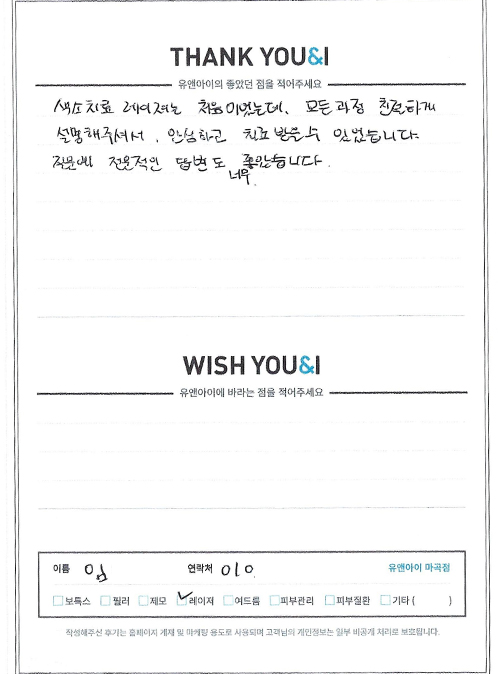 THANK YOU&I
유앤아이의 좋았던 점을 적어주세요
색소치료 레이져는 처음이었는데, 모든 과정 친절하게
설명해주셔서, 안심하고 치료 받을 수 있었습니다.
질문에 전문적인 답변도 너무 좋았습니다.
WISH YOU&I
유앤아이에 바라는 점을 적어주세요
이름 임 연락처 010 유앤아이 마곡점
보톡스 필러 제모 레이저 여드름 피부관리 피부질환 기타 ( )
작성해주신 후기는 홈페이지 게재 및 마케팅 용도로 사용되며 고객님의 개인정보는 일부 비공개 처리로 보호됩니다.